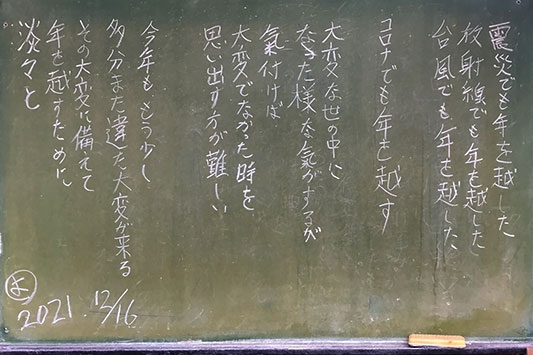 震災でも年を越した
放射線でも年を越した
台風でも年を越した
コロナでも年を越す
大変な世の中に
なった様な氣がするが
氣付けば
大変でなかった時を
思い出す方が難しい
今年も もう少し
多分また違った大変が来る
その大変に備えて
年を越すために
淡々と
よ
2021. 12/16